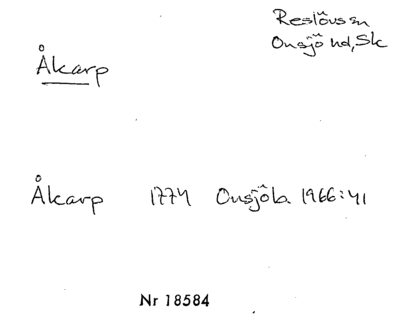 Reslövs sn
Onsjö hd, Sk
Åkarp
Åkarp 1774 Onsjöb. 1966:41
Nr 18584